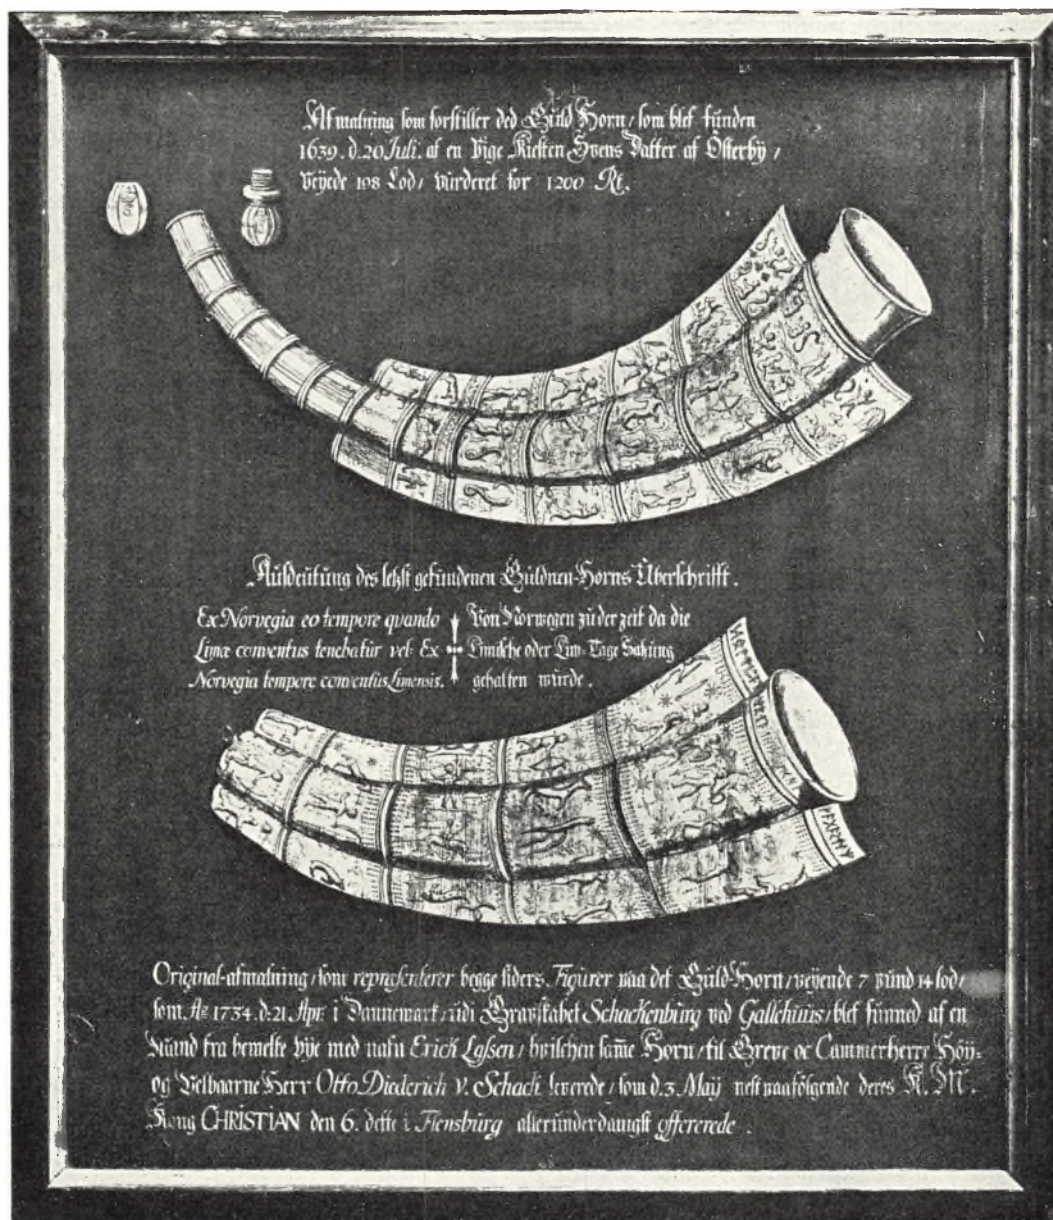 Afmalning som forstiller ded Guld Horn / som blef funden
1639. d. 20 Juli. af en Pige Kiesten Svens Datter af Österbÿ /
Veÿede 198 Lod / Vürderet for 1200 Rt.
Ausdeütung des letst gefundenen Guldnen-Horns Überschrifft.
Ex Norvegia eo tempore quando
Limæ conventus tenebatür vel Ex
Norvegia tempore conventus Limensis.
Von Norwegen zü der zeit da die
Limische oder Lim-Tage Satzüng
gehalten würde.
Original-afmalning / som representerer begge siders Figürer paa det Güld-Horn / veÿende 7 pünd 14 lod /
som Aō 1734. d. 21 Apr. i Dannemark / üdi Gravskabet Schackenbürg ved Gallehüüs / blef fünned af en
Mand fra bemelte bÿe med nafn Erick Lassen / hvilchen sam̄e Horn / til Greve oc Cammerherre Höÿ-
og Velbaarne Herr Otto Diederich v. Schack leverede / som d. 3. Maÿ nest paafölgende deres K. M.
Kong CHRISTIAN den 6. dette i Flensbürg alleründerdanigst offererede.